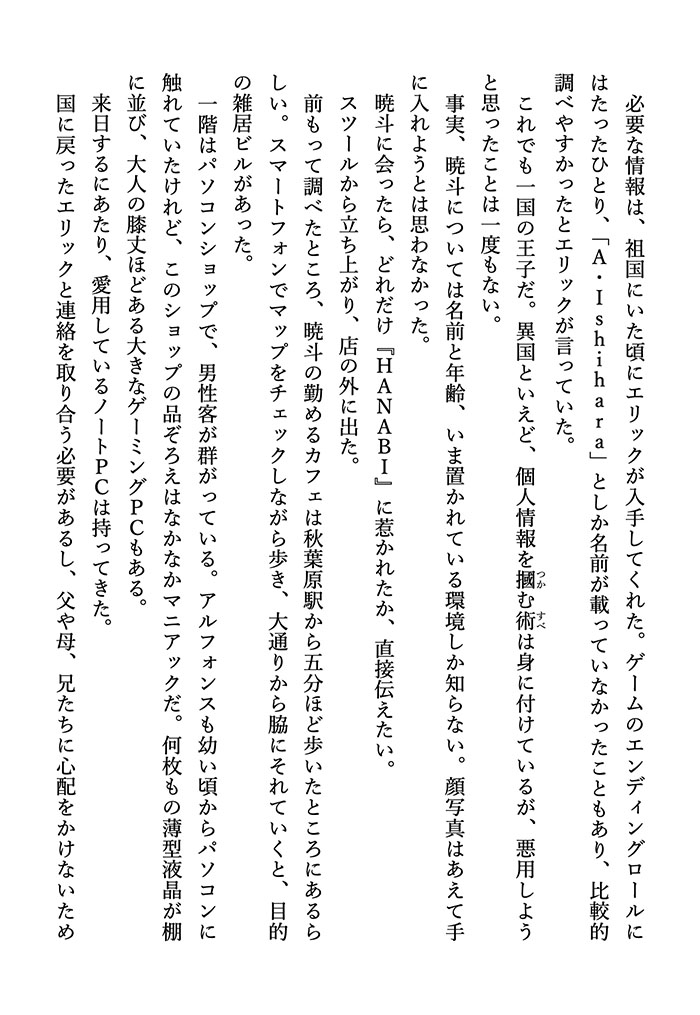 必要な情報は、祖国にいた頃にエリックが入手してくれた。ゲームのエンディングロールに
はたったひとり、「A・Ishihara」としか名前が載っていなかったこともあり、比較的
調べやすかったとエリックが言っていた。
これでも一国の王子だ。異国といえど、個人情報を摑む術は身に付けているが、悪用しよう
つか
すべ
と思ったことは一度もない。
事実、暁斗については名前と年齢、いま置かれている環境しか知らない。顔写真はあえて手
に入れようとは思わなかった。
暁斗に会ったら、どれだけ『HANABI』に惹かれたか、直接伝えたい。
スツールから立ち上がり、店の外に出た。
前もって調べたところ、暁斗の勤めるカフェは秋葉原駅から五分ほど歩いたところにあるら
しい。スマートフォンでマップをチェックしながら歩き、大通りから脇にそれていくと、目的
の雑居ビルがあった。
一階はパソコンショップで、男性客が群がっている。アルフォンスも幼い頃からパソコンに
触れていたけれど、このショップの品ぞろえはなかなかマニアックだ。何枚もの薄型液晶が棚
に並び、大人の膝丈ほどある大きなゲーミングPCもある。
来日するにあたり、愛用しているノートPCは持ってきた。
国に戻ったエリックと連絡を取り合う必要があるし、父や母、兄たちに心配をかけないため